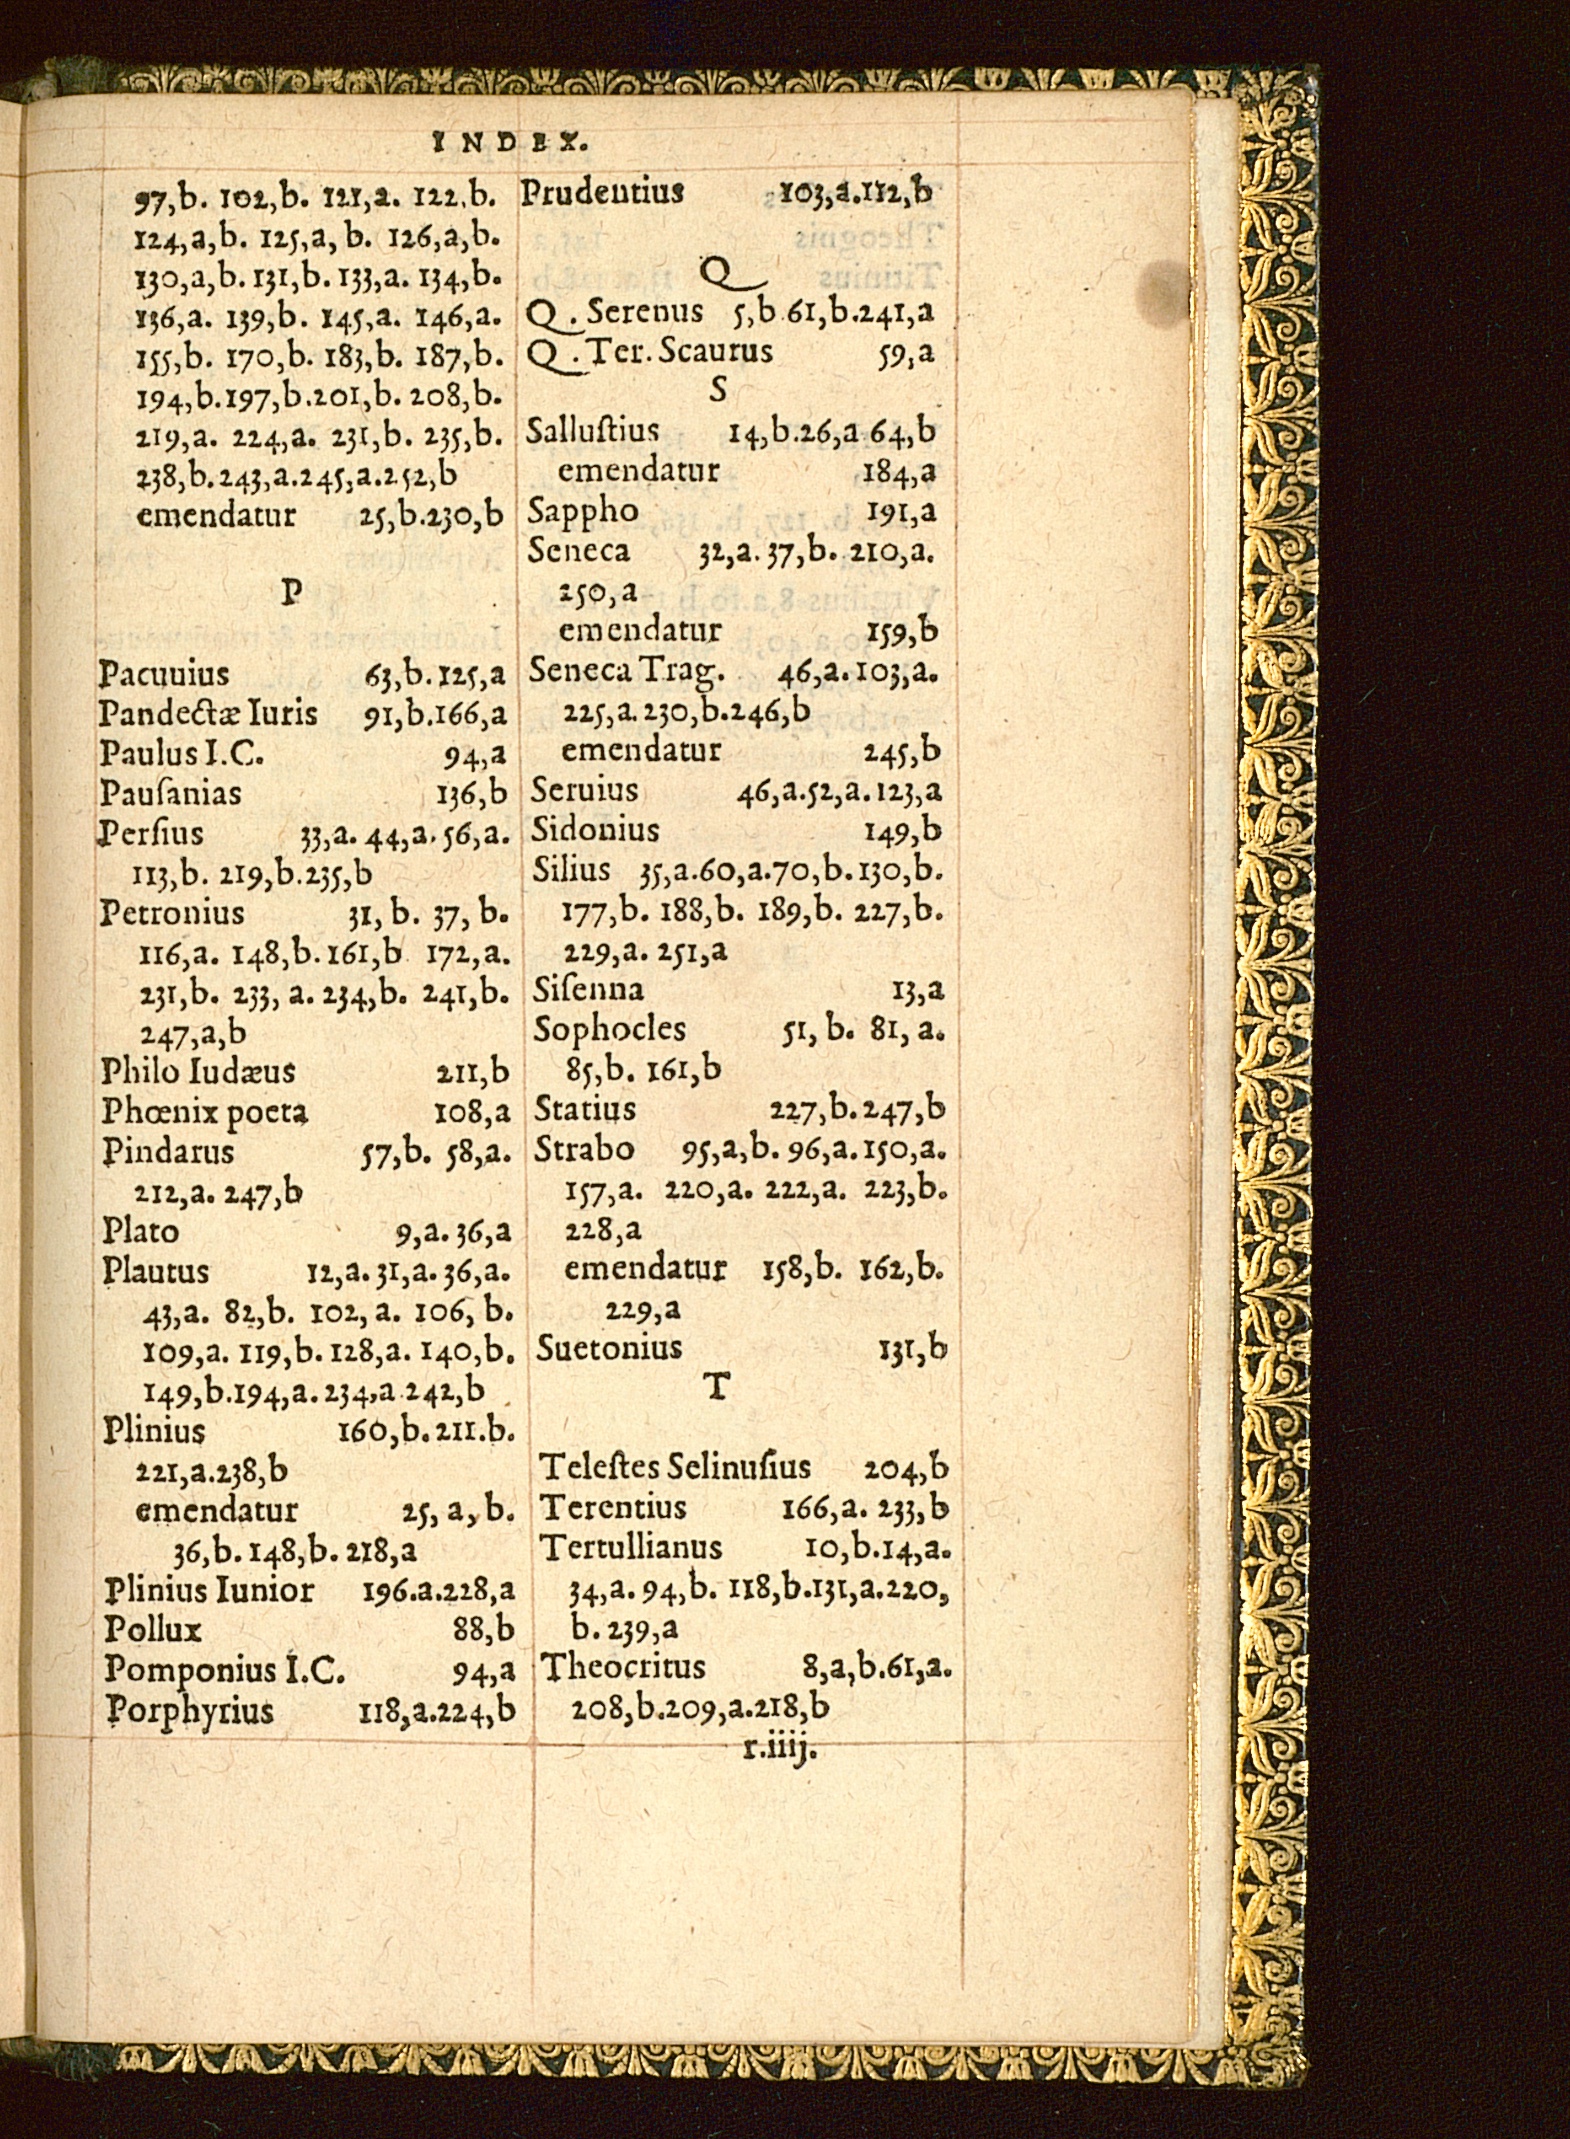 INDEX.
97,b. 102,b. 121,a. 122,b.
124,a,b. 125,a, b. 126,a,b.
130,a,b. 131,b. 133,a. 134,b.
136,a. 139,b. 145,a. 146,a.
155,b. 170,b. 183,b. 187,b.
194,b.197,b.201,b. 208,b.
219,a. 224,a. 231,b. 235,b.
238,b.243,a.245,a.252,b
emendatur 25,b.230,b
P
Pacuuius 63,b.125,a
Pandectæ Iuris 91,b.166,a
Paulus I.C. 94,a
Pauſanias 136,b
Perſius 33,a. 44,a. 56,a.
113,b. 219,b.235,b
Petronius 31, b. 37, b.
116,a. 148,b.161,b 172,a.
231,b. 233, a. 234,b. 241,b.
247,a,b
Philo Iudæus 211,b
Phœnix poeta 108,a
Pindarus 57,b. 58,a.
212,a. 247,b
Plato 9,a. 36,a
Plautus 12,a. 31,a. 36,a.
43,a. 82,b. 102, a. 106, b.
109,a. 119,b. 128,a. 140,b.
149,b.194,a. 234,a 242,b
Plinius 160,b.211.b.
221,a.238,b
emendatur 25, a, b.
36,b. 148,b. 218,a
Plinius Iunior 196.a.228,a
Pollux 88,b
Pomponius I.C. 94,a
Porphyrius 118,a.224,b
Prudentius 103,a.112,b
Q
Q. Serenus 5,b 61,b.241,a
Q. Ter. Scaurus 59,a
S
Salluſtius 14,b.26,a 64,b
emendatur 184,a
Sappho 191,a
Seneca 32,a. 37,b. 210,a.
250,a
emendatur 159,b
Seneca Trag. 46,a. 103,a.
225,a. 230,b.246,b
emendatur 245,b
Seruius 46,a.52,a. 123,a
Sidonius 149,b
Silius 35,a.60,a.70,b. 130,b.
177,b. 188,b. 189,b. 227,b.
229,a. 251,a
Siſenna 13,a
Sophocles 51, b. 81, a.
85,b. 161,b
Statius 227,b.247,b
Strabo 95,a,b. 96,a. 150,a.
157,a. 220,a. 222,a. 223,b.
228,a
emendatur 158,b. 162,b.
229,a
Suetonius 131,b
T
Teleſtes Selinuſius 204,b
Terentius 166,a. 233,b
Tertullianus 10,b.14,a.
34,a. 94,b. 118,b.131,a.220,
b. 239,a
Theocritus 8,a,b.61,a.
208,b.209,a.218,b
r.iiij.